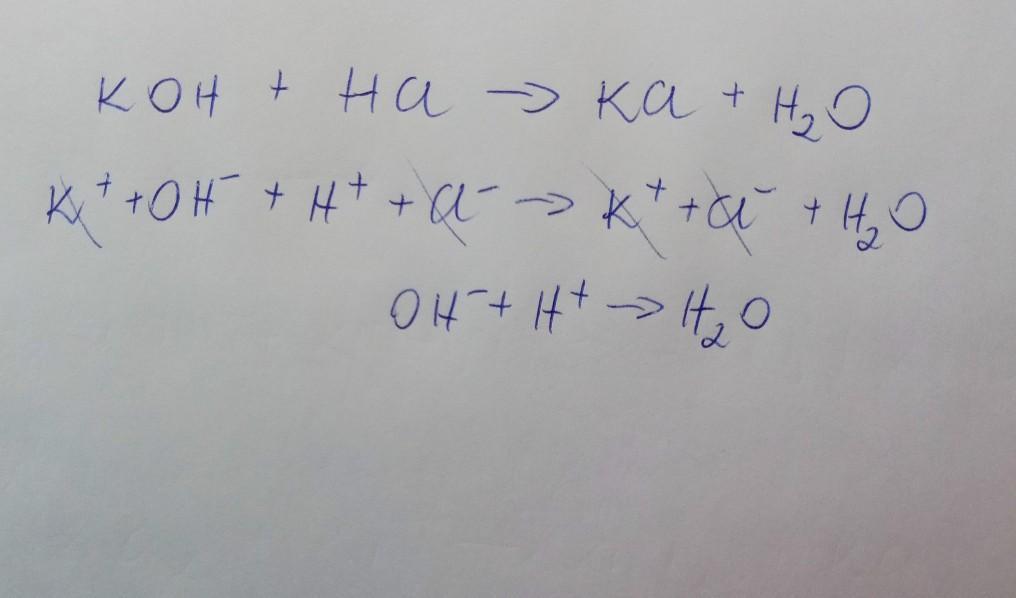 KOH + HCl → KCl + H₂O
K⁺ + OH⁻ + H⁺ + Cl⁻ → K⁺ + Cl⁻ + H₂O
OH⁻ + H⁺ → H₂O